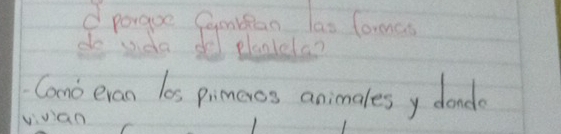 d porque Cambian las formas
de vida del planleta?
- Como eran los primeros animales y donde
vivian